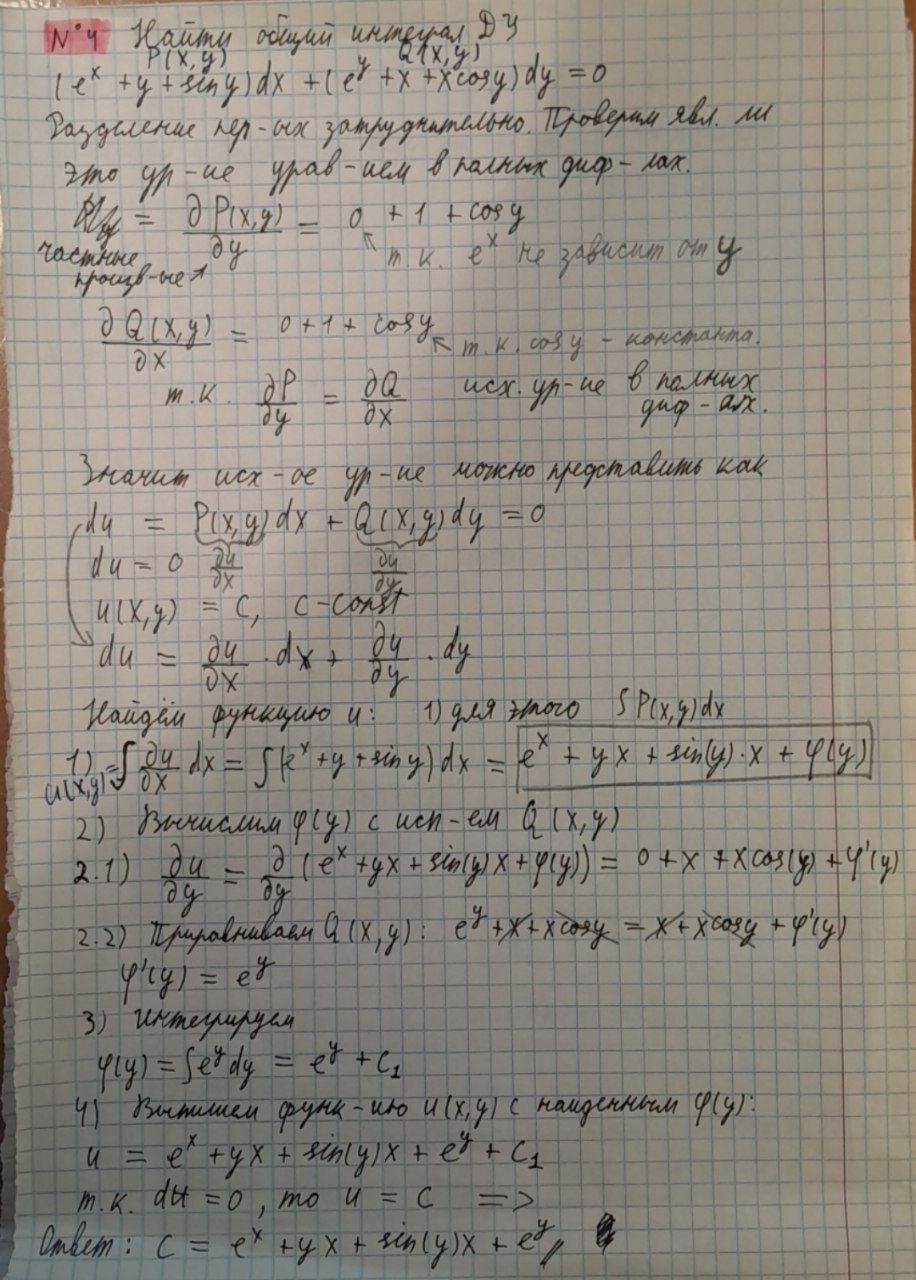 N°4 Найти общий интеграл ДУ
P(x,y) Q(x,y)
(e^x + y + sin y)dx + (e^y + x + x cos y)dy = 0
Разделение пер-ых затруднительно. Проверим явл. ли
это ур-ие урав-ием в полных диф-лах.
= ∂P(x,y)/∂y = 0 + 1 + cos y
частные произв-ые ↗ ↖ т.к. e^x не зависит от y
∂Q(x,y)/∂x = 0 + 1 + cos y ↖ т.к. cos y - константа.
т.к. ∂P/∂y = ∂Q/∂x исх. ур-ие в полных
диф-алх.
Значит исх-ое ур-ие можно представить как
du = P(x,y)dx + Q(x,y)dy = 0
du = 0 ∂u/∂x ∂u/∂y
u(x,y) = C, C - const
du = ∂u/∂x · dx + ∂u/∂y · dy
Найдём функцию u: 1) для этого ∫P(x,y)dx
1) u(x,y) = ∫ ∂u/∂x dx = ∫(e^x + y + sin y)dx = e^x + yx + sin(y)·x + φ(y)
2) Вычислим φ(y) с исп-ем Q(x,y)
2.1) ∂u/∂y = ∂/∂y (e^x + yx + sin(y)x + φ(y)) = 0 + x + x cos(y) + φ'(y)
2.2) Приравниваем Q(x,y): e^y + x + x cos y = x + x cos y + φ'(y)
φ'(y) = e^y
3) Интегрируем
φ(y) = ∫e^y dy = e^y + C₁
4) Выпишем функ-ию u(x,y) с найденным φ(y):
u = e^x + yx + sin(y)x + e^y + C₁
т.к. du = 0, то u = C =>
Ответ: C = e^x + yx + sin(y)x + e^y //